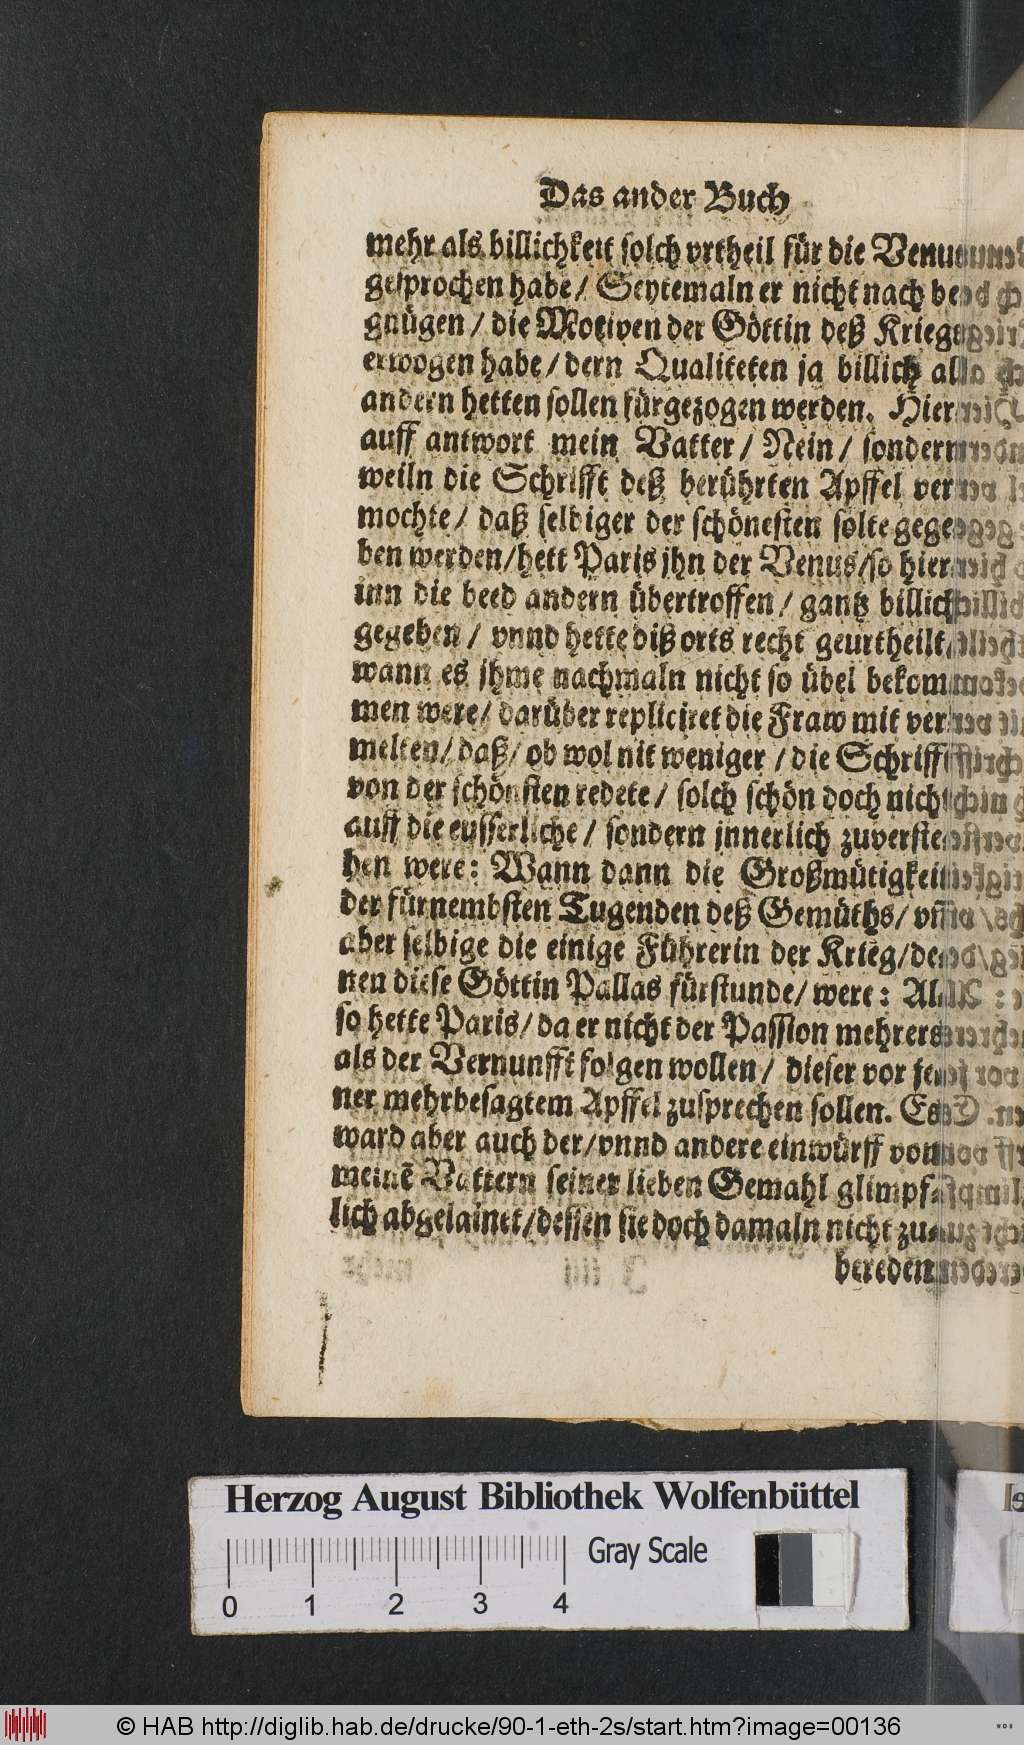 Das ander Buch
mehr als billichkeit solch vrtheil für die Venu
gesprochen habe / Seytemaln er nicht nach be
gnügen / die Motiven der Göttin deß Kriegs
erwogen habe / dern Qualiteten ja billich all
andern hetten sollen fürgezogen werden. Hier
auff antwort mein Vatter / Nein / sondern
weiln die Schrifft deß berührten Apffel ver
mochte / daß selbiger der schönesten solte gege
ben werden / hett Paris jhn der Venus / so hier
inn die beed andern übertroffen / gantz billich
gegeben / vnnd hette diß orts recht geurtheilt /
wann es jhme nachmaln nicht so übel bekom
men were / darüber repliciret die Fraw mit ver
melten / daß / ob wol nit weniger / die Schrifft
von der schönsten redete / solch schön doch nicht
auff die eusserliche / sondern jnnerlich zuverste
hen were: Wann dann die Großmütigkeit
der fürnembsten Tugenden deß Gemüths / vnd
aber selbige die einige Führerin der Krieg / de
nen diese Göttin Pallas fürstunde / were: Al
so hette Paris / da er nicht der Passion mehrers
als der Vernunfft folgen wollen / dieser vor je
ner mehrbesagtem Apffel zusprechen sollen. Es
ward aber auch der / vnnd andere einwürff von
meinē Vattern seiner lieben Gemahl glimpf
lich abgelainet / dessen sie doch damaln nicht zu
bereden
Herzog August Bibliothek Wolfenbüttel
Gray Scale
0 1 2 3 4
© HAB http://diglib.hab.de/drucke/90-1-eth-2s/start.htm?image=00136